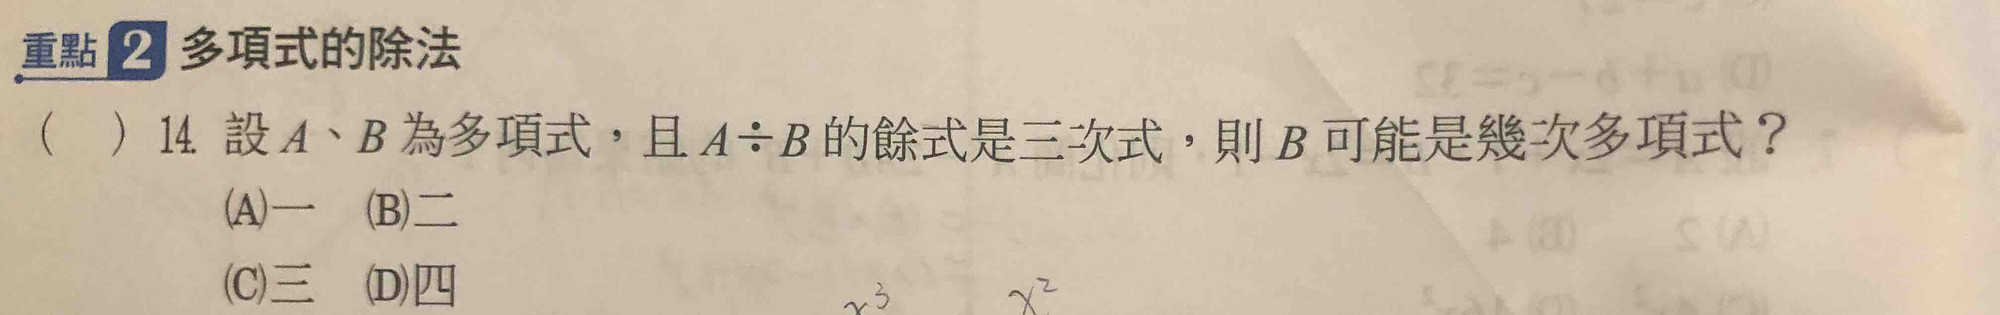 重點 2 多項式的除法
(　) 14. 設 A、B 為多項式，且 A÷B 的餘式是三次式，則 B 可能是幾次多項式？
(A)一　(B)二
(C)三　(D)四
x³　x²